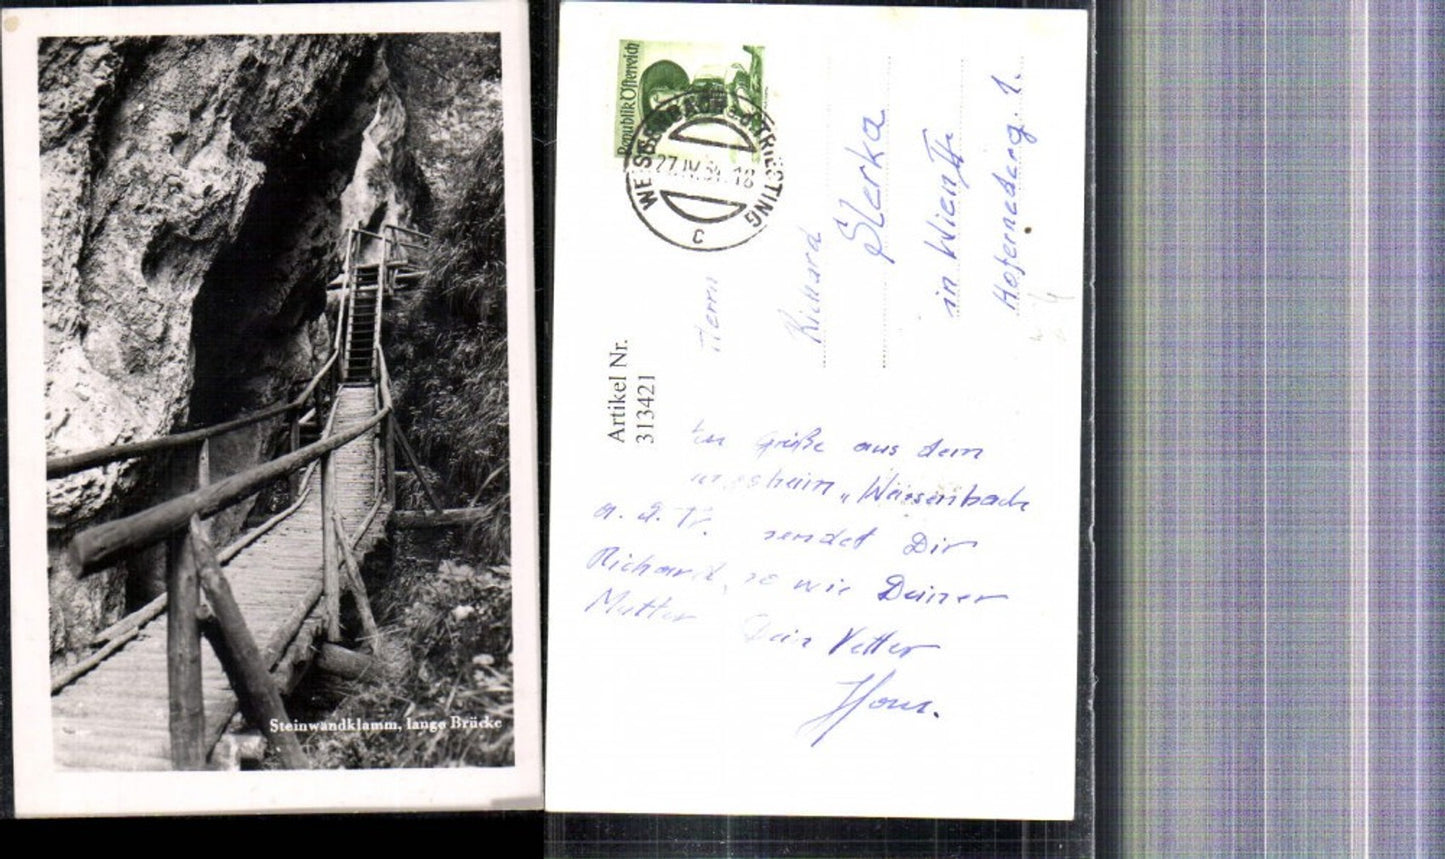 Steinwandklamm, lange Brücke
Republik Österreich
WEISSENBACH
TRIESTING
27.IV.54.18
C
Artikel Nr.
313421
Herrn
Richard
Sterka
in Wien
Grüße aus dem
"Weisenbach
a. d. Tr. sendet Dir
Richard, so wie Deiner
Mutter Dein Vetter